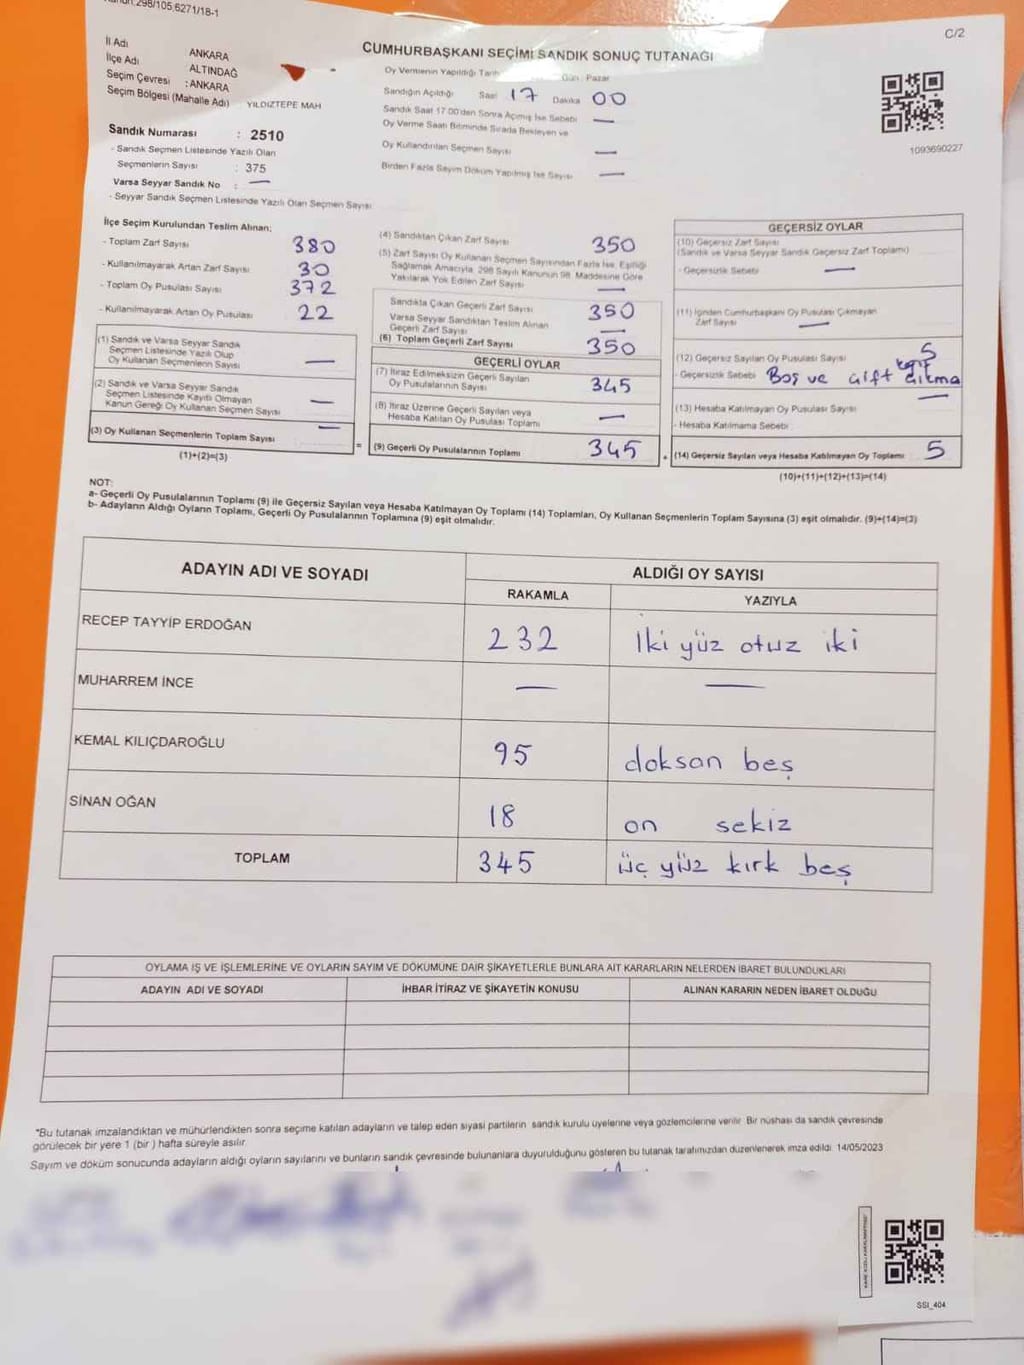 298/105.6271/18-1
C/2
CUMHURBAŞKANI SEÇİMİ SANDIK SONUÇ TUTANAĞI
İl Adı ANKARA
İlçe Adı ALTINDAĞ
Seçim Çevresi : ANKARA
Seçim Bölgesi (Mahalle Adı) YILDIZTEPE MAH
Sandık Numarası : 2510
- Sandık Seçmen Listesinde Yazılı Olan
Seçmenlerin Sayısı : 375
Varsa Seyyar Sandık No : —
- Seyyar Sandık Seçmen Listesinde Yazılı Olan Seçmen Sayısı
Oy Vermenin Yapıldığı Gün: Pazar
Sandığın Açıldığı Saat 17 Dakika 00
Sandık Saat 17.00'den Sonra Açılmış İse Sebebi —
Oy Verme Saati Bitiminde Sırada Bekleyen ve
Oy Kullandırılan Seçmen Sayısı —
Birden Fazla Sayım Döküm Yapılmış İse Sayısı —
1093690227
İlçe Seçim Kurulundan Teslim Alınan;
- Toplam Zarf Sayısı 380
- Kullanılmayarak Artan Zarf Sayısı 30
- Toplam Oy Pusulası Sayısı 372
- Kullanılmayarak Artan Oy Pusulası 22
(1) Sandık ve Varsa Seyyar Sandık
Seçmen Listesinde Yazılı Olup
Oy Kullanan Seçmenlerin Sayısı —
(2) Sandık ve Varsa Seyyar Sandık
Seçmen Listesinde Kayıtlı Olmayan
Kanun Gereği Oy Kullanan Seçmen Sayısı —
(3) Oy Kullanan Seçmenlerin Toplam Sayısı —
(1)+(2)=(3)
(4) Sandıktan Çıkan Zarf Sayısı 350
(5) Zarf Sayısı Oy Kullanan Seçmen Sayısından Fazla İse, Eşitliği
Sağlamak Amacıyla, 298 Sayılı Kanunun 98. Maddesine Göre
Yakılarak Yok Edilen Zarf Sayısı —
Sandıkta Çıkan Geçerli Zarf Sayısı 350
Varsa Seyyar Sandıktan Teslim Alınan
Geçerli Zarf Sayısı —
(6) Toplam Geçerli Zarf Sayısı 350
GEÇERLİ OYLAR
(7) İtiraz Edilmeksizin Geçerli Sayılan
Oy Pusulalarının Sayısı 345
(8) İtiraz Üzerine Geçerli Sayılan veya
Hesaba Katılan Oy Pusulası Toplamı —
= (9) Geçerli Oy Pusulalarının Toplamı 345 +
GEÇERSİZ OYLAR
(10) Geçersiz Zarf Sayısı
(Sandık ve Varsa Seyyar Sandık Geçersiz Zarf Toplamı)
- Geçersizlik Sebebi —
(11) İçinden Cumhurbaşkanı Oy Pusulası Çıkmayan
Zarf Sayısı —
(12) Geçersiz Sayılan Oy Pusulası Sayısı 5
- Geçersizlik Sebebi Boş ve çift
(13) Hesaba Katılmayan Oy Pusulası Sayısı —
- Hesaba Katılmama Sebebi
(14) Geçersiz Sayılan veya Hesaba Katılmayan Oy Toplamı 5
(10)+(11)+(12)+(13)=(14)
NOT:
a- Geçerli Oy Pusulalarının Toplamı (9) ile Geçersiz Sayılan veya Hesaba Katılmayan Oy Toplamı (14) Toplamları, Oy Kullanan Seçmenlerin Toplam Sayısına (3) eşit olmalıdır. (9)+(14)=(3)
b- Adayların Aldığı Oyların Toplamı, Geçerli Oy Pusulalarının Toplamına (9) eşit olmalıdır.
ADAYIN ADI VE SOYADI ALDIĞI OY SAYISI
RAKAMLA YAZIYLA
RECEP TAYYİP ERDOĞAN 232 İki yüz otuz iki
MUHARREM İNCE — —
KEMAL KILIÇDAROĞLU 95 doksan beş
SİNAN OĞAN 18 on sekiz
TOPLAM 345 üç yüz kırk beş
OYLAMA İŞ VE İŞLEMLERİNE VE OYLARIN SAYIM VE DÖKÜMÜNE DAİR ŞİKAYETLERLE BUNLARA AİT KARARLARIN NELERDEN İBARET BULUNDUKLARI
ADAYIN ADI VE SOYADI İHBAR İTİRAZ VE ŞİKAYETİN KONUSU ALINAN KARARIN NEDEN İBARET OLDUĞU
"Bu tutanak imzalandıktan ve mühürlendikten sonra seçime katılan adayların ve talep eden siyasi partilerin sandık kurulu üyelerine veya gözlemcilerine verilir. Bir nüshası da sandık çevresinde
görülecek bir yere 1 (bir) hafta süreyle asılır.
Sayım ve döküm sonucunda adayların aldığı oyların sayılarını ve bunların sandık çevresinde bulunanlara duyurulduğunu gösteren bu tutanak tarafımızdan düzenlenerek imza edildi. 14/05/2023
SSI_404